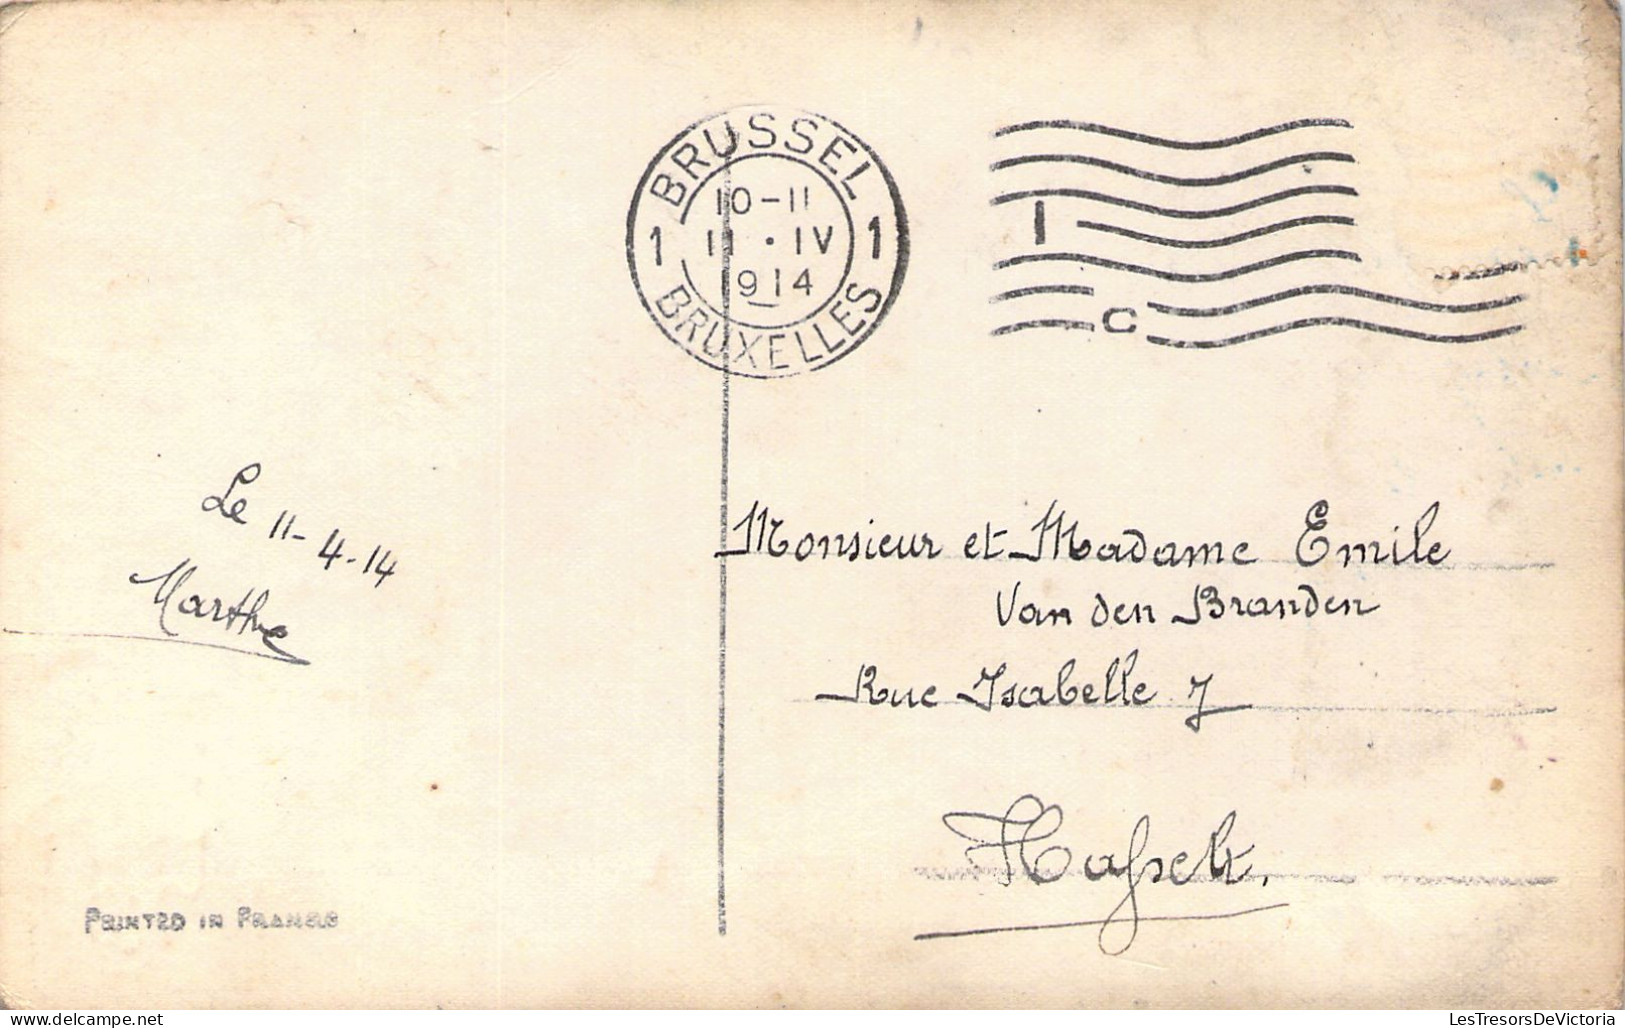 BRUSSEL
10-11
1 11·IV 1
1914
BRUXELLES
1
C
Le 11-4-14
Marthe
Monsieur et Madame Emile
Van den Branden
Rue Isabelle 7
Hasselt.
PRINTED IN FRANCE
LesTresorsDeVictoria